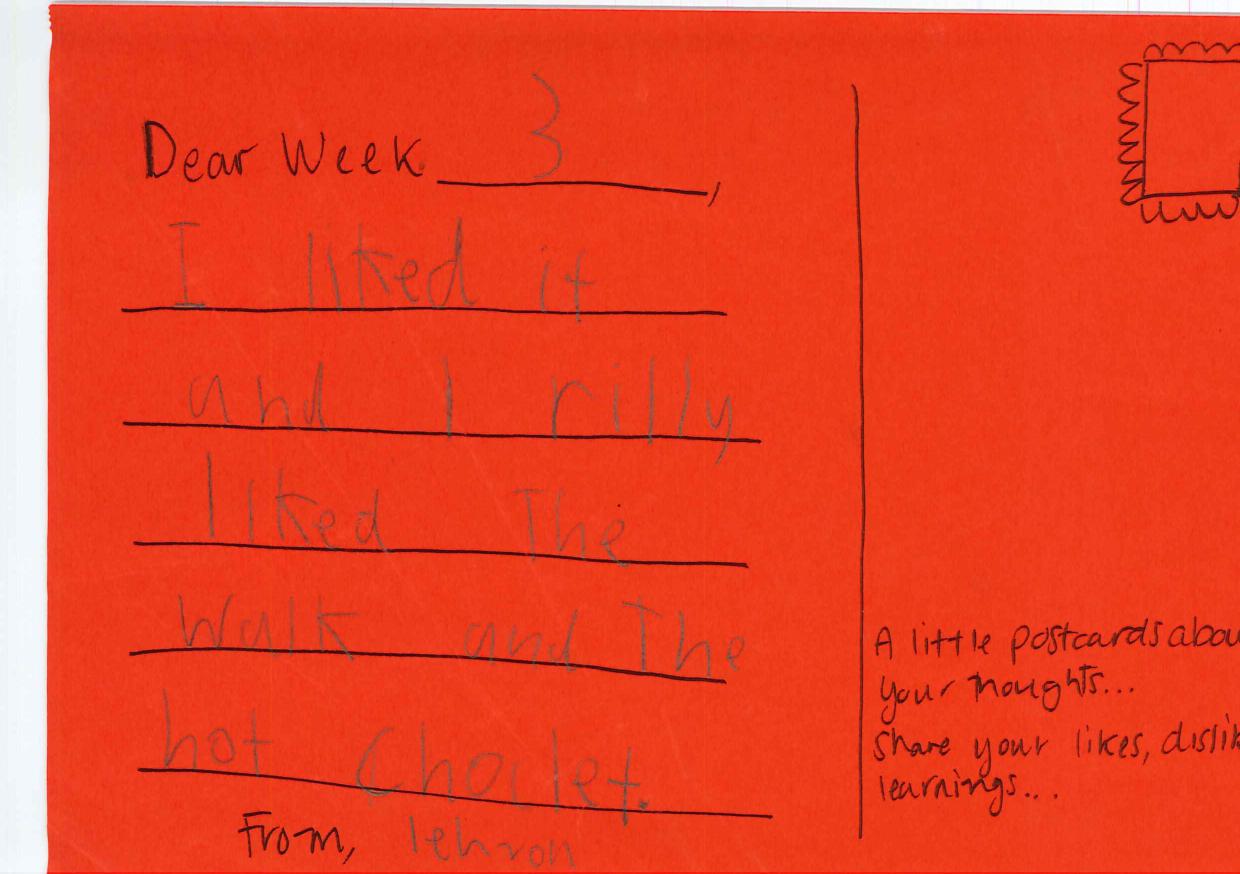 Dear Week 3,
I liked it
and I rilly
liked The
walk and The
hot Choclet.
From,
A little postcards abou
your thoughts...
share your likes, dislik
learnings...